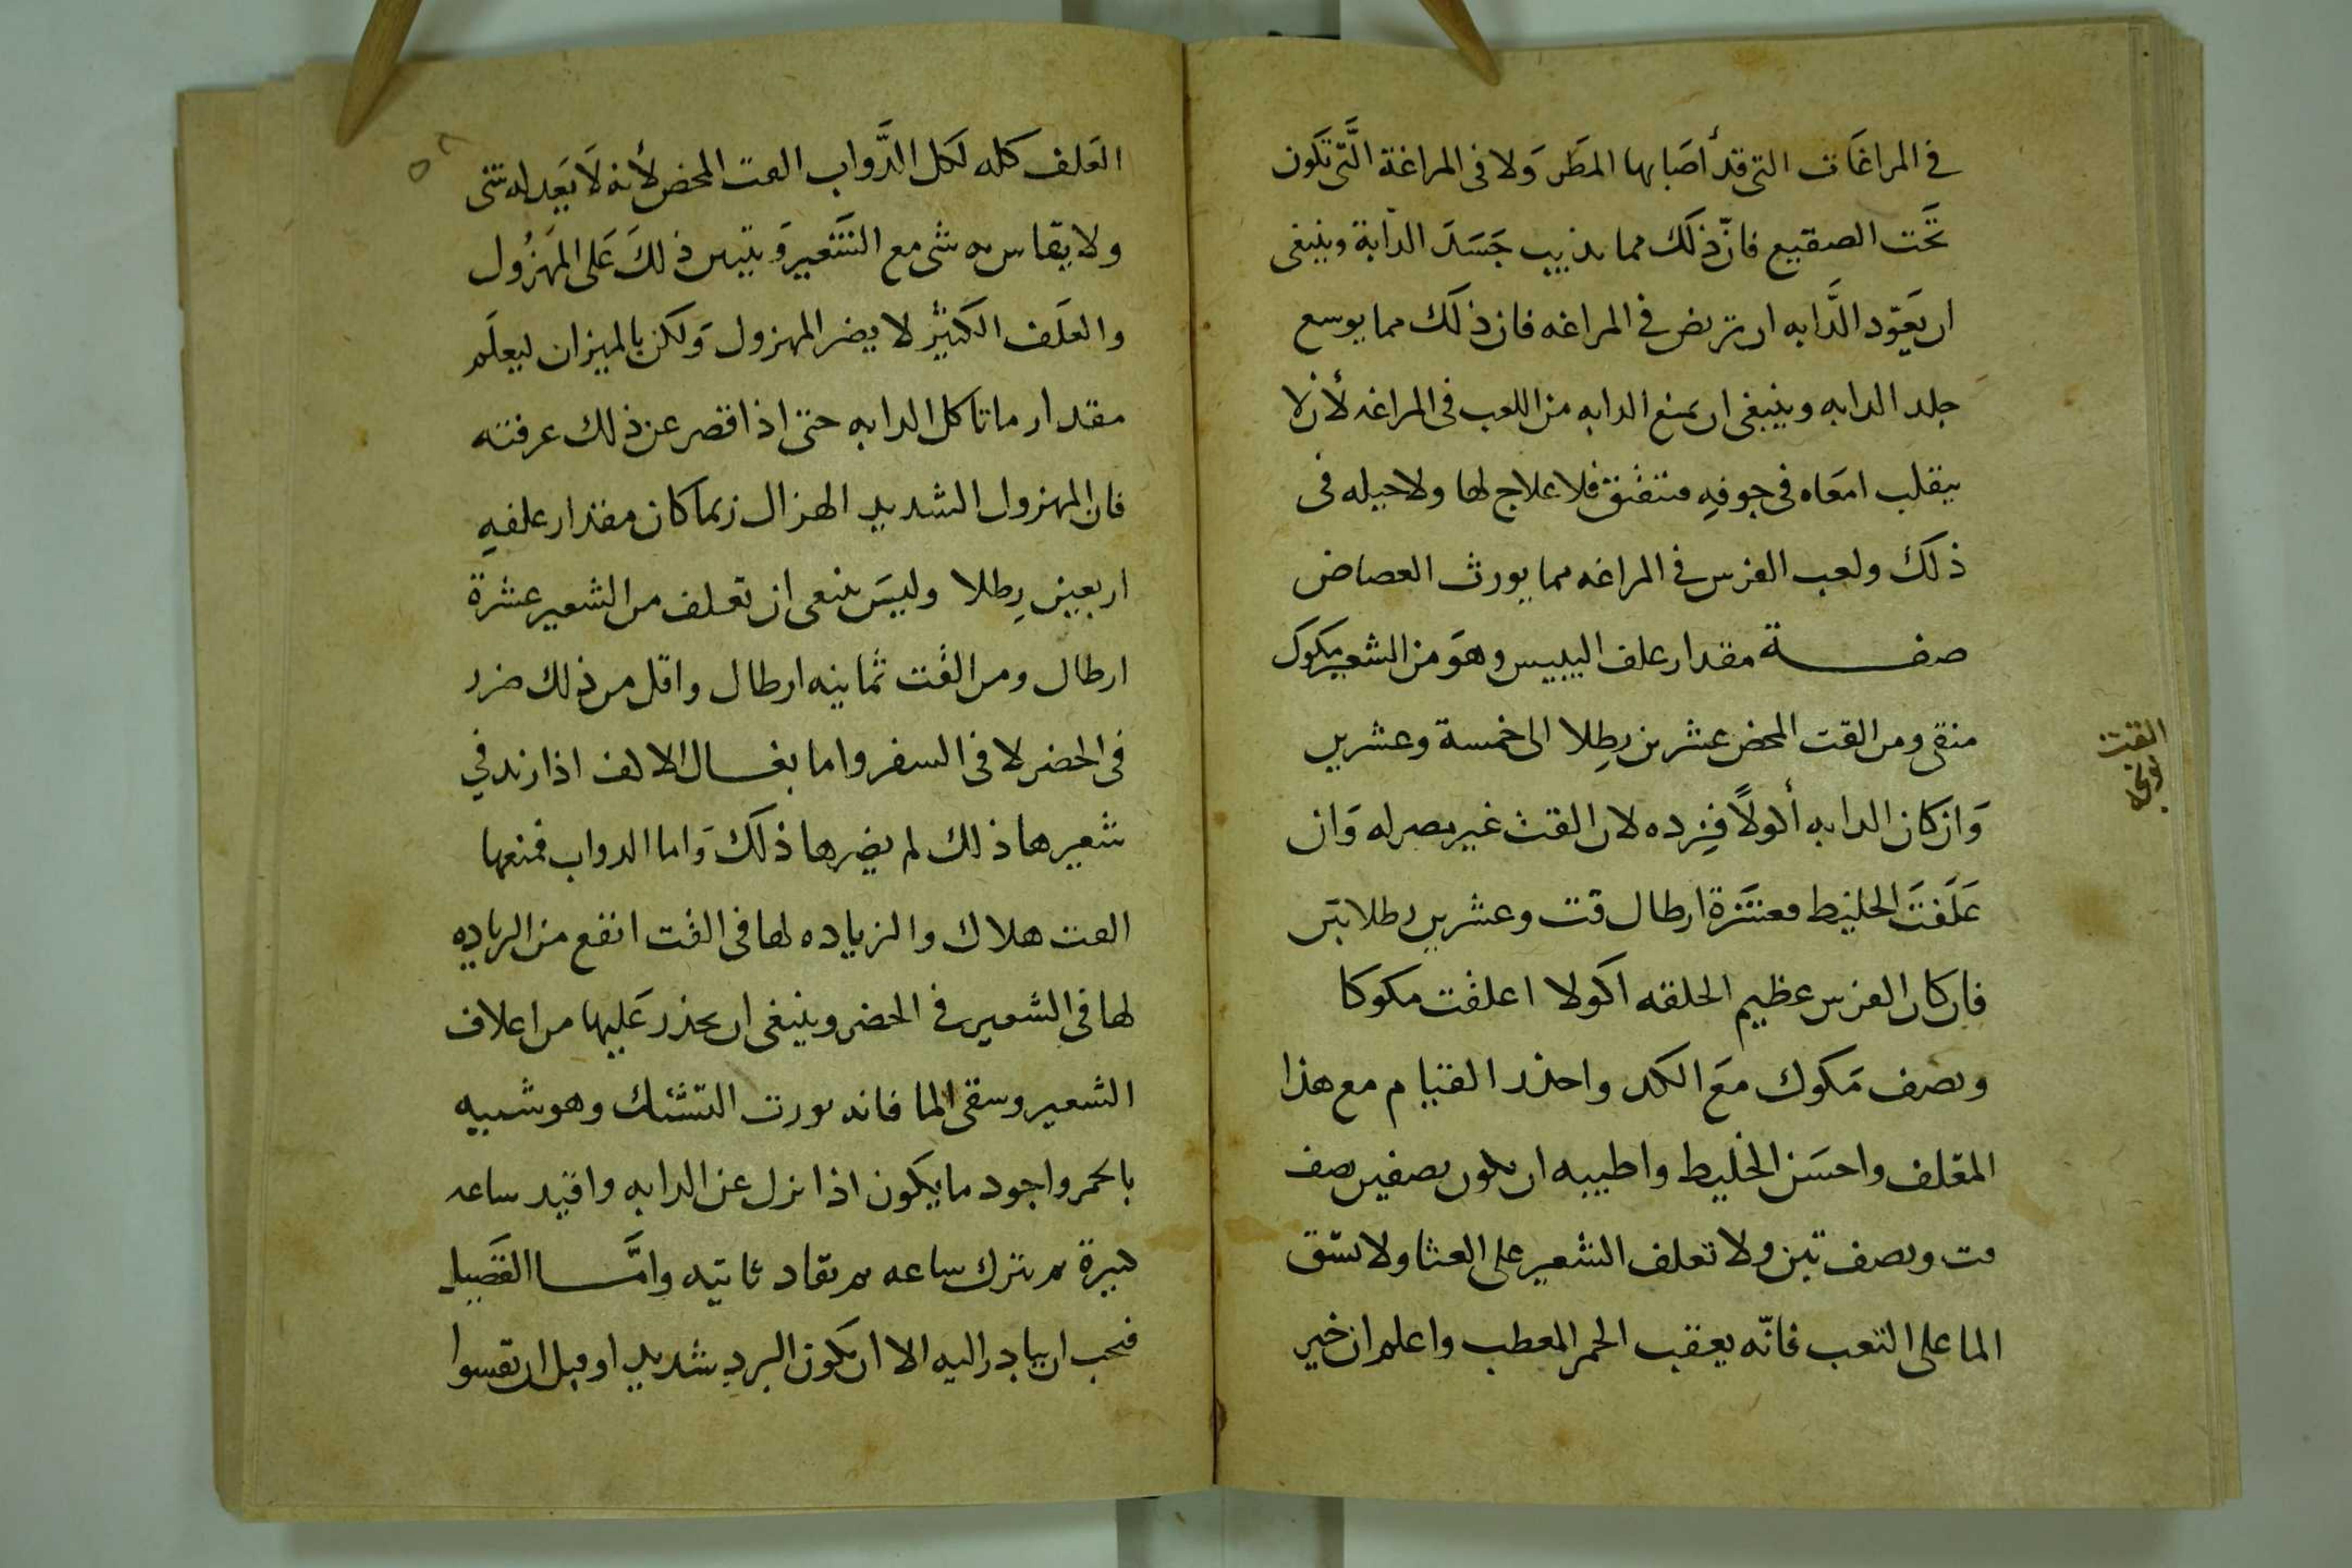 في المراغات التي قد أصابها المطر ولا في المراغة التي تكون
تحت الصقيع فان ذلك مما يذيب جسد الدابة وينبغي
ان يعود الدابه ان تربض في المراغه فان ذلك مما يوسع
جلد الدابه وينبغي ان يمنع الدابه من اللعب في المراغه لأن لا
يتقلب امعاه في جوفه فتنفتق فلا علاج لها ولا حيله في
ذلك ولعب الفرس في المراغه مما يورث العصاض
صفة مقدار علف اليبيس وهو من الشعير مكوك
منقى ومن القت المحض عشرين رطلا الى خمسة وعشرين
وان كان الدابه أكولا فزده لان القت غير مضر له وان
علفت الخليط فعشرة ارطال قت وعشرين رطلا تبن
فان كان الفرس عظيم الخلقه اكولا اعلفت مكوكا
ونصف مكوك مع الكد واحذر القيام مع هذا
المعلف واحسن الخليط واطيبه ان يكون نصفين نصف
قت ونصف تبن ولا تعلف الشعير على العشا ولا تسق
الما على التعب فانه يعقب الحمر المعطب واعلم ان خير
القت
يونجه
٥٨
العلف كله لكل الدواب القت المحض لأنه لا يعدله شي
ولا يقاس به شي مع الشعير ويتبين ذلك على المهزول
والعلف الكثير لا يضر المهزول ولكن بالميزان ليعلم
مقدار ما تاكل الدابه حتى اذا قصر عن ذلك عرفته
فان المهزول الشديد الهزال ربما كان مقدار علفه
اربعين رطلا وليس ينبغي ان تعلف من الشعير عشرة
ارطال ومن القت ثمانيه ارطال واقل من ذلك ضرر
في الحضر لا في السفر واما بغال الالف اذا زيد في
شعيرها ذلك لم يضرها ذلك واما الدواب فمنعها
القت هلاك والزياده لها في القت انفع من الزياده
لها في الشعير في الحضر وينبغي ان يحذر عليها من اعلاف
الشعير وسقي الما فانه يورث التشنك وهو شبيه
بالحمر واجود ما يكون اذا نزل عن الدابه واقيد ساعه
كبيرة ثم تترك ساعه ثم تقاد ثانيه وامّا القصيل
فيجب ان يبادر اليه الا ان يكون البرد شديد او قبل ان تقسوا